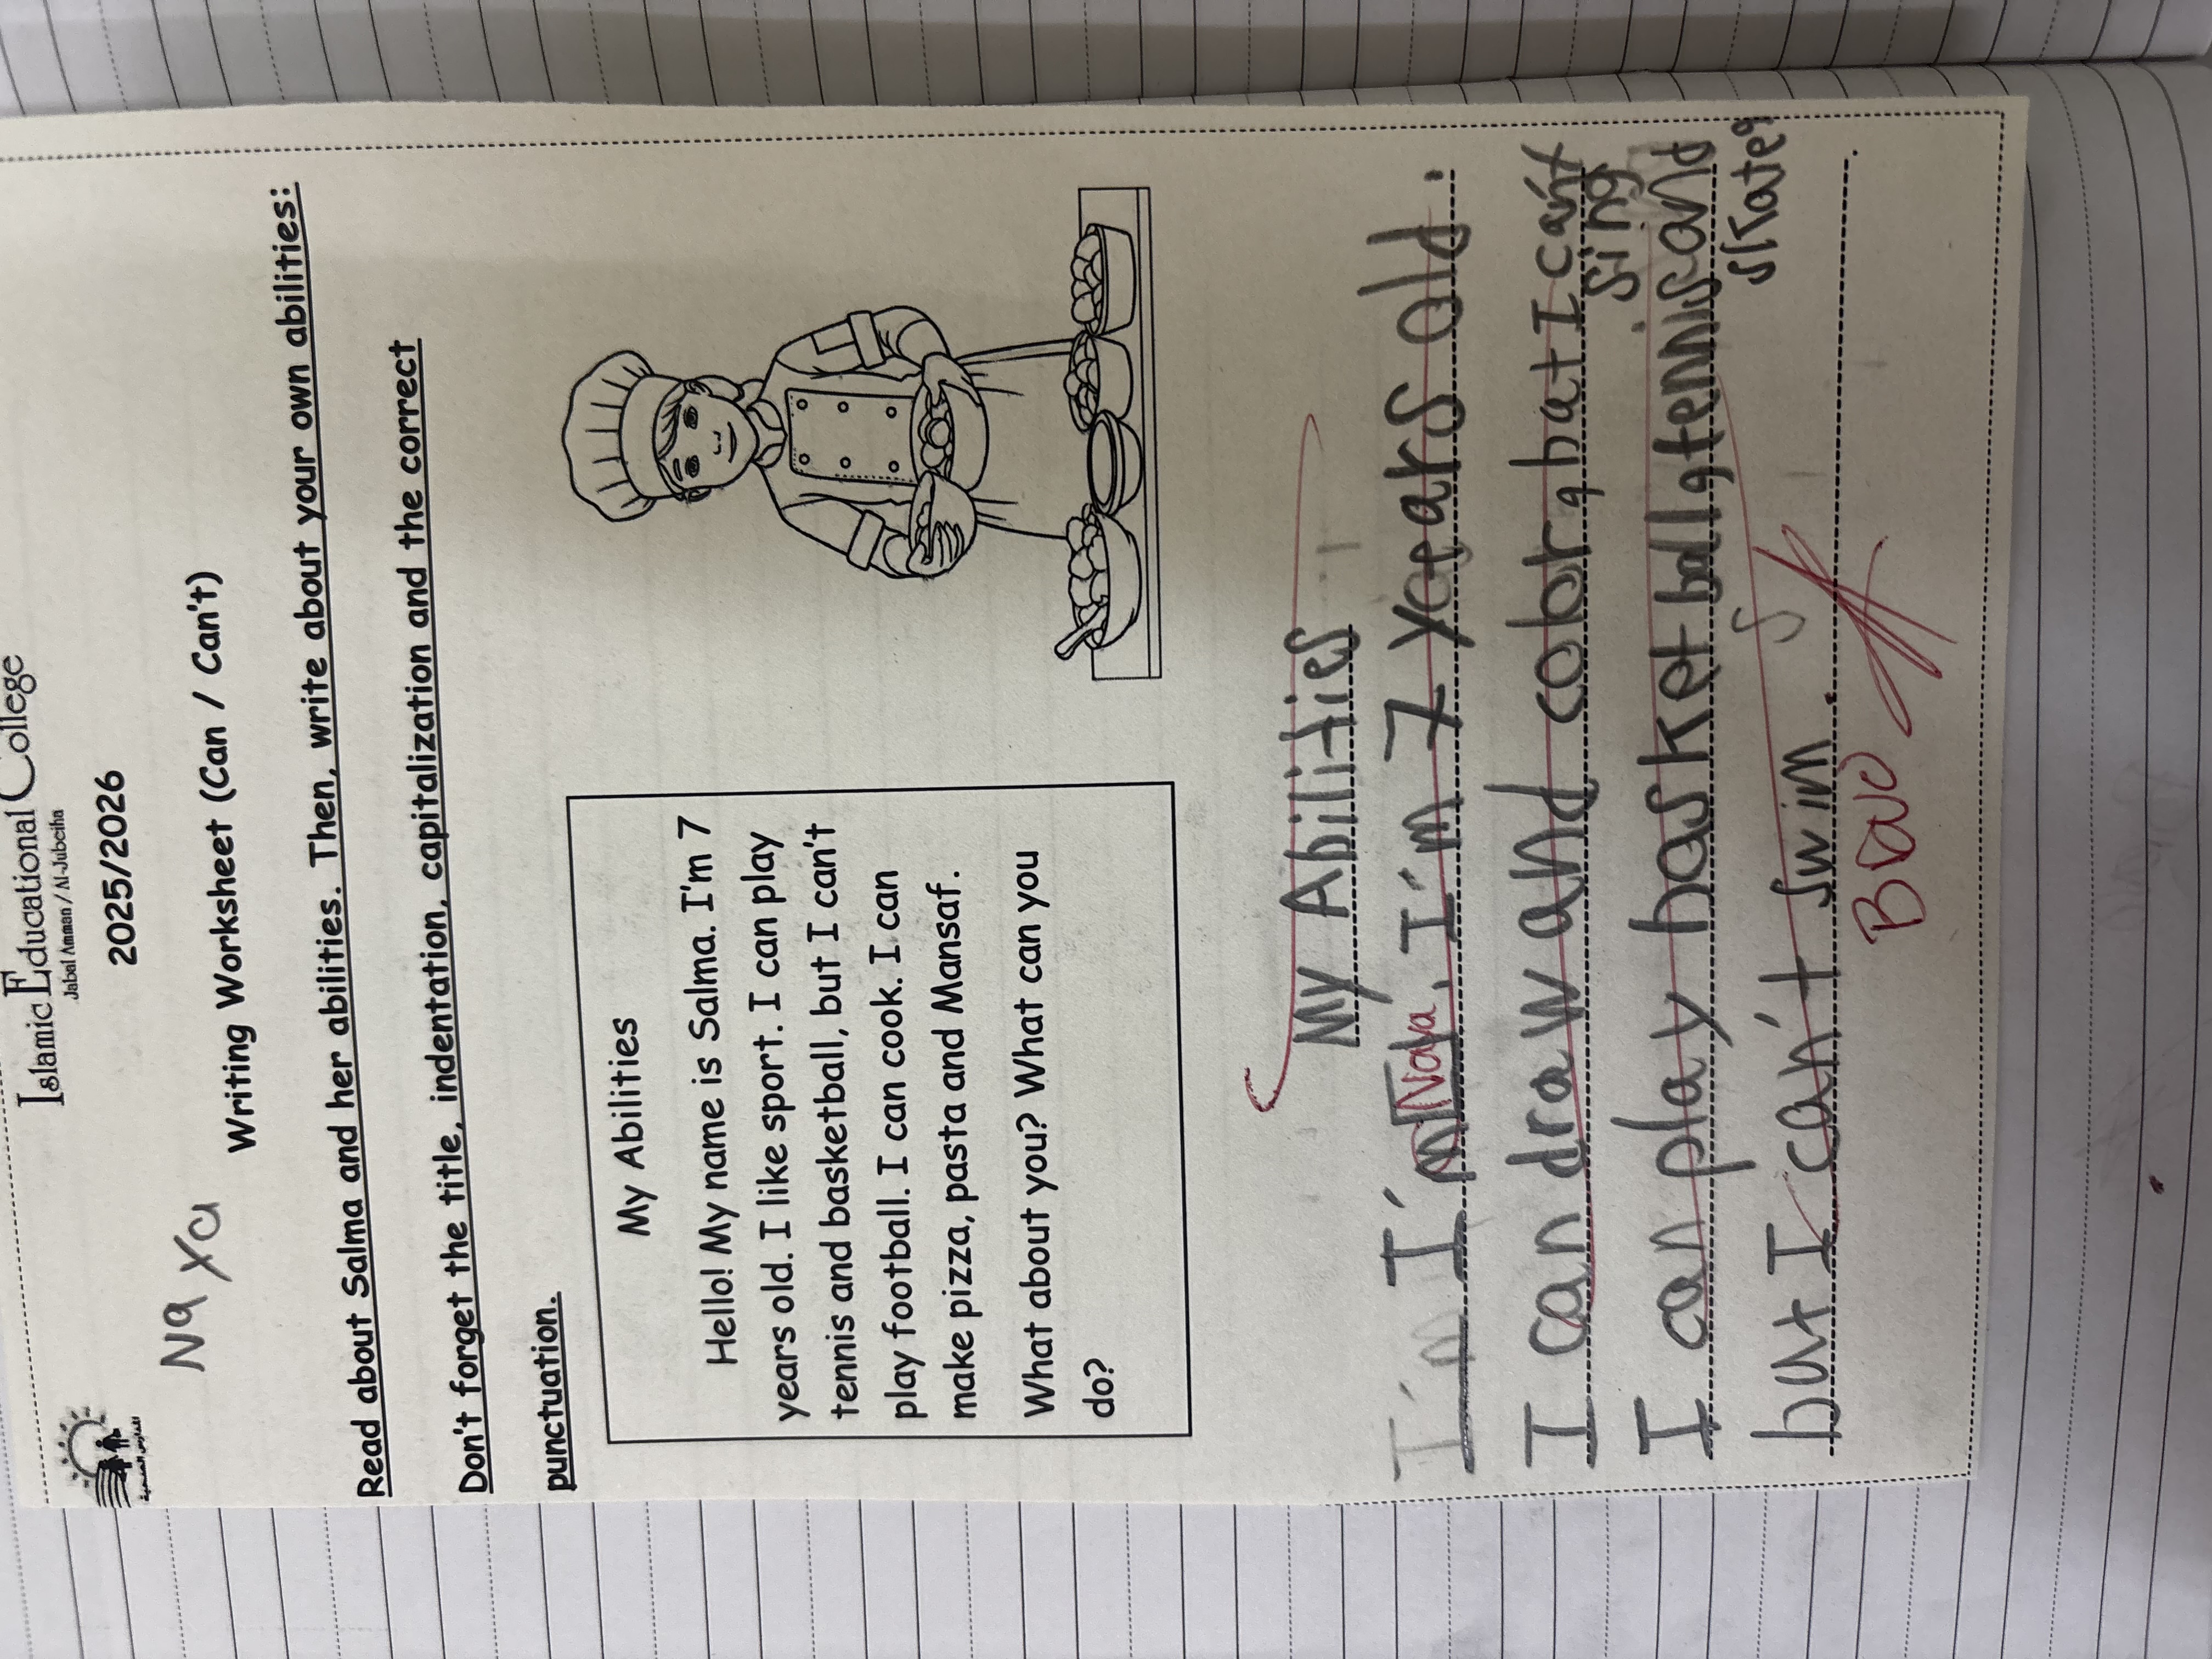 Islamic Educational College
Jabal Amman / Al-Jubeiha
2025/2026
Naya
Writing Worksheet (Can / Can't)
Read about Salma and her abilities. Then, write about your own abilities:
Don't forget the title, indentation, capitalization and the correct
punctuation.
My Abilities
Hello! My name is Salma. I'm 7
years old. I like sport. I can play
tennis and basketball, but I can't
play football. I can cook. I can
make pizza, pasta and Mansaf.
What about you? What can you
do?
My Abilities
I'm I'm Naya. I'm 7 years old.
I can draw and color, but I can't
sing.
I can play basketball, tennis and
skate,
but I can't swim.
Bravo